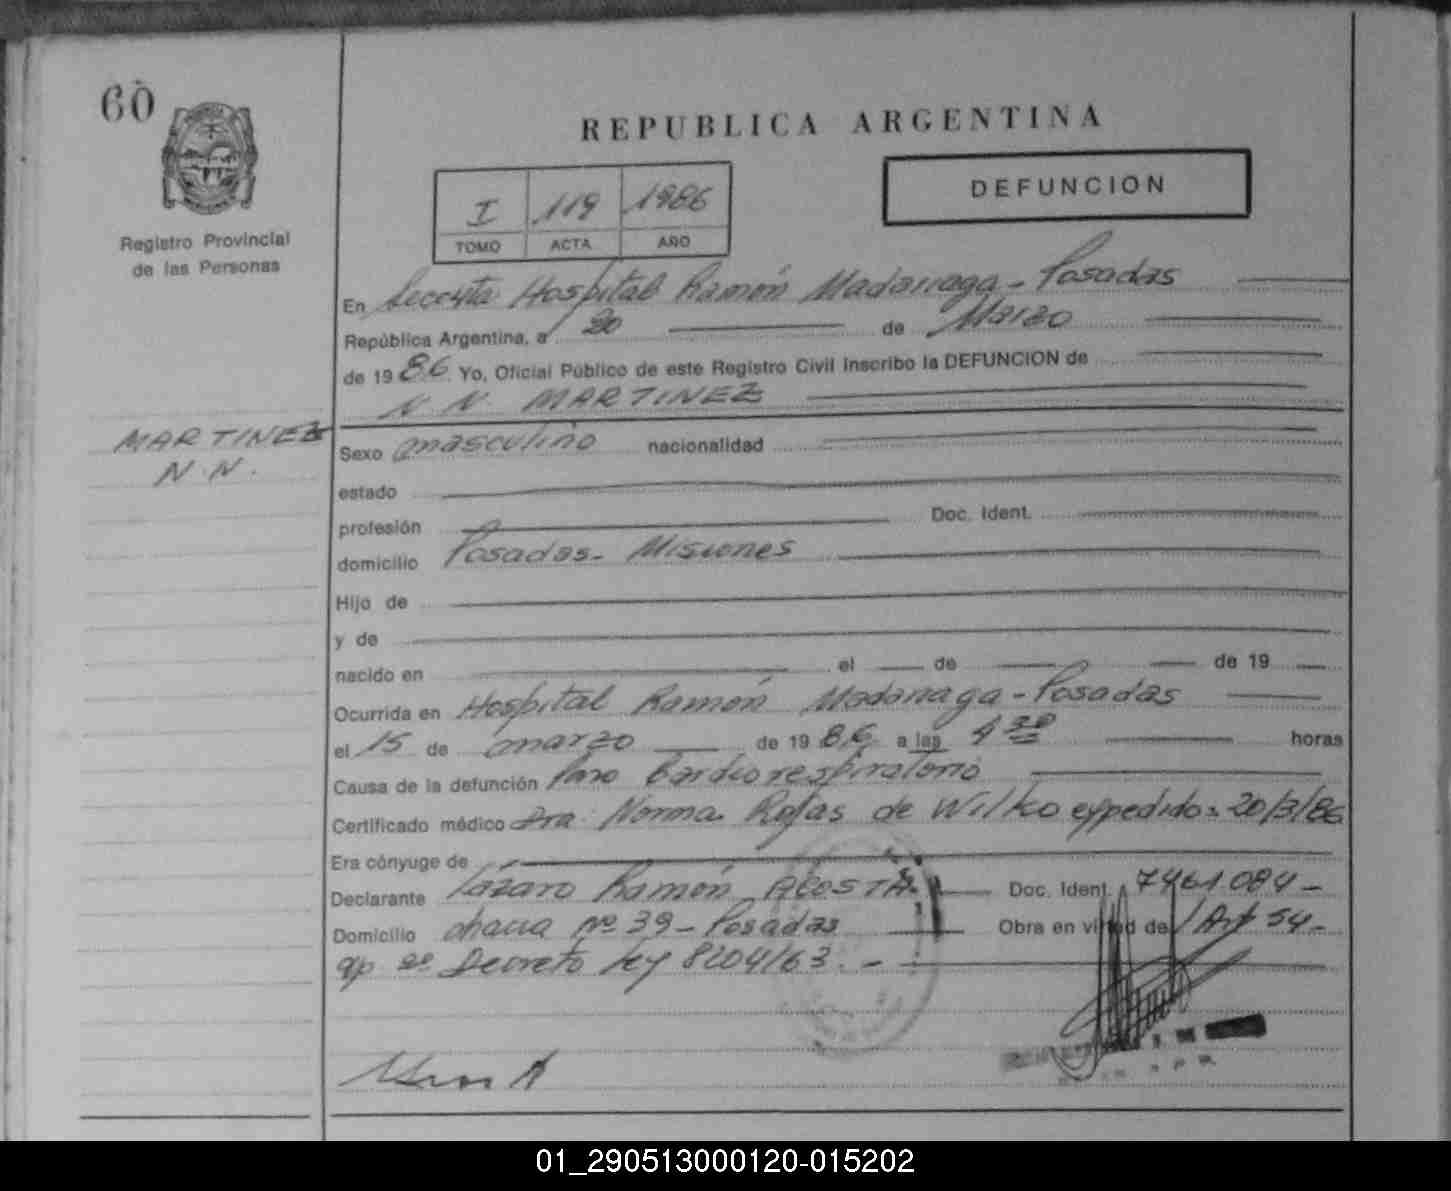 60
REPUBLICA ARGENTINA
DEFUNCION
I 119 1986
TOMO ACTA AÑO
Registro Provincial
de las Personas
En Hospital Ramón Madariaga - Posadas
República Argentina, a 20 de Marzo
de 1986. Yo, Oficial Público de este Registro Civil inscribo la DEFUNCION de
N. N. MARTINEZ
MARTINEZ
N. N.
Sexo masculino nacionalidad
estado
profesión Doc. Ident.
domicilio Posadas - Misiones
Hijo de
y de
nacido en el de de 19
Ocurrida en Hospital Ramón Madariaga - Posadas
el 15 de marzo de 1986 a las 4 30 horas
Causa de la defunción Paro Cardiorespiratorio
Certificado médico Dra. Norma Rojas de Wilko expedido: 20/3/86
Era cónyuge de
Declarante Lázaro Ramón ACOSTA Doc. Ident. 7461.084 -
Domicilio chacra nº 39 - Posadas Obra en virtud de Art 54 -
ap 2º Decreto Ley 8204/63. -
01_290513000120-015202